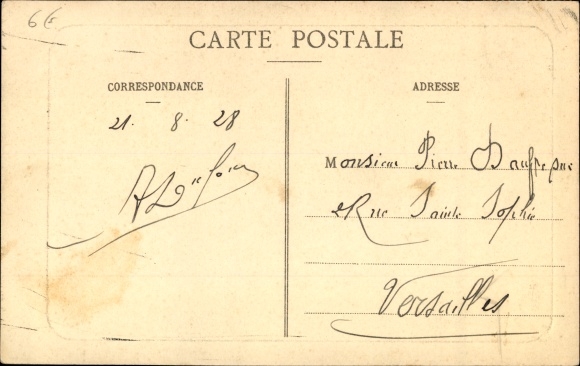 6€
CARTE POSTALE
CORRESPONDANCE
21. 8. 28
ADRESSE
Monsieur Pierre
2 Rue Sainte Sophie
Versailles